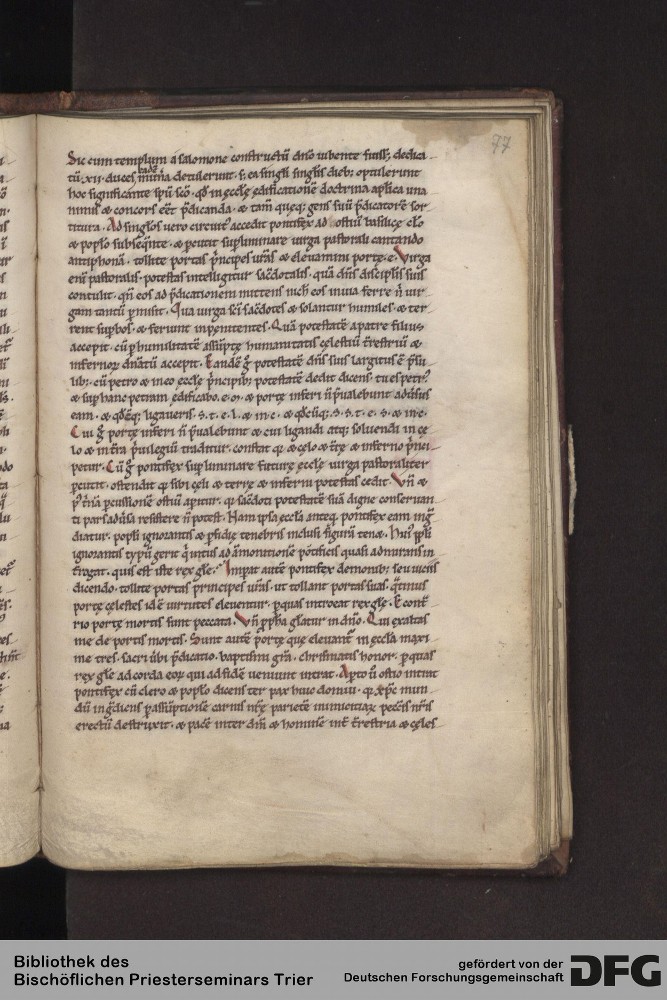 77
Sic cum templum a salomone constructū dn̄o iubente fuiss&; dedica-
tū·xii·duces munera detulerunt· s; ea singli singlis dieb; optulerunt
hoc significante sp̄u sc̄o· qd̄ in ęccłę edificatione doctrina aplica una
nimis & concors eēt p̄dicanda· & tam̄ quęq; gens suū p̄dicatorē sor-
titura· Ad singłos uero circuit accedit pontifex ad ostiū basilicę cło
& poplo subseq̄nte· & pcutit supliminare uirga pastorali cantando
antiphonā· tollite portas p̄ncipes ur̄as & eleuamini portę· e· Virga
eni pastoralis· potestas intelligitur sac̄dotalis· quā dn̄s discipłis suis
contulit· qn̄ eos ad p̄dicationem mittens nich̄ eos in uia ferre n̄ uir-
gam tantū p̄misit· Qua uirga sc̄i sac̄dotes & solantur humiles· & ter-
rent supbos· & feriunt inpenitentes· Quā potestatē a patre filius
accepit· cū p humilitatē assūptę humanitatis cęlestiū t̄restriū &
infernoꝝ dn̄atū accepit· Eandē g̊ potestatē dn̄s suis largitus ē fr̄i
lib;· cū petro & in eo ęccłę p̄ncipib; potestatē dedit dicens· tu es petr᷒
& sup hanc petram edificabo· e· m· & portę inferi n̄ p̄ualebunt aduʼsus
eam· & qd̄cūq; ligaueris· s· t· e· l· & in c· & qd̄cūq;· s· s· t· e· s· & in c·
Cui g̊ portę inferi n̄ p̄ualebunt & cui ligandi atq; soluendi in cę
lo & in t̄ra p̄uilegiū traditur· constat qꝛ & cęlo & t̄rę & inferno p̄nci-
petur· Cū g̊ pontifex supliminare futurę ęccłę uirga pastoraliter
pcutit· ostendit qꝛ sibi cęli & terrę & inferni potestas cedit· Vn̄ &
p t̄nā pcussionē ostiū apitur· qꝛ sac̄doti potestatē suā digne conseruan
ti pars aduʼsa resistere n̄ potest· Nam ipsa ęccła anteq̄ pontifex eam ing̊
diatur· popli ignorantis & pfidię tenebris inclusi figurā tenꝫ· Huī popli
ignorantis typū gerit q̇ intus ad āmonitionē pōtificis quasi admirans in
t̄rogat· quis est iste rex głę· Inpat autē pontifex demonib; seu uiciis
dicendo· tollite portas principes ur̄as· ut tollant portas suas· q̄tinus
portę cęlestes id ē uirtutes eleuentur· p quas introeat rex głę· E cont̄
rio portę mortis sunt peccata· Vn̄ ppħa głatur in dn̄o· Qui exaltas
me de portis mortis· Sunt autē portę que eleuant̄ in ęccła maxi-
me tres· sacri ūbi p̄dicatio· baptismi gr̄a· chrismatis honor· p quas
rex głę ad corda eoꝝ qui ad fidē ueniunt intrat· Apto ū ostio intrat
pontifex cū clero & poplo dicens ter pax huic domui· qꝛ xp̄c mun-
dū ing̊diens p assūptionē carnis nr̄ę parietē inimiciciaꝝ peccīs nr̄is
erectū destruxit· & pacē inter dm̄ & hominē int̄ t̄restria & cęles-
Bibliothek des
Bischöflichen Priesterseminars Trier
gefördert von der
Deutschen Forschungsgemeinschaft
DFG